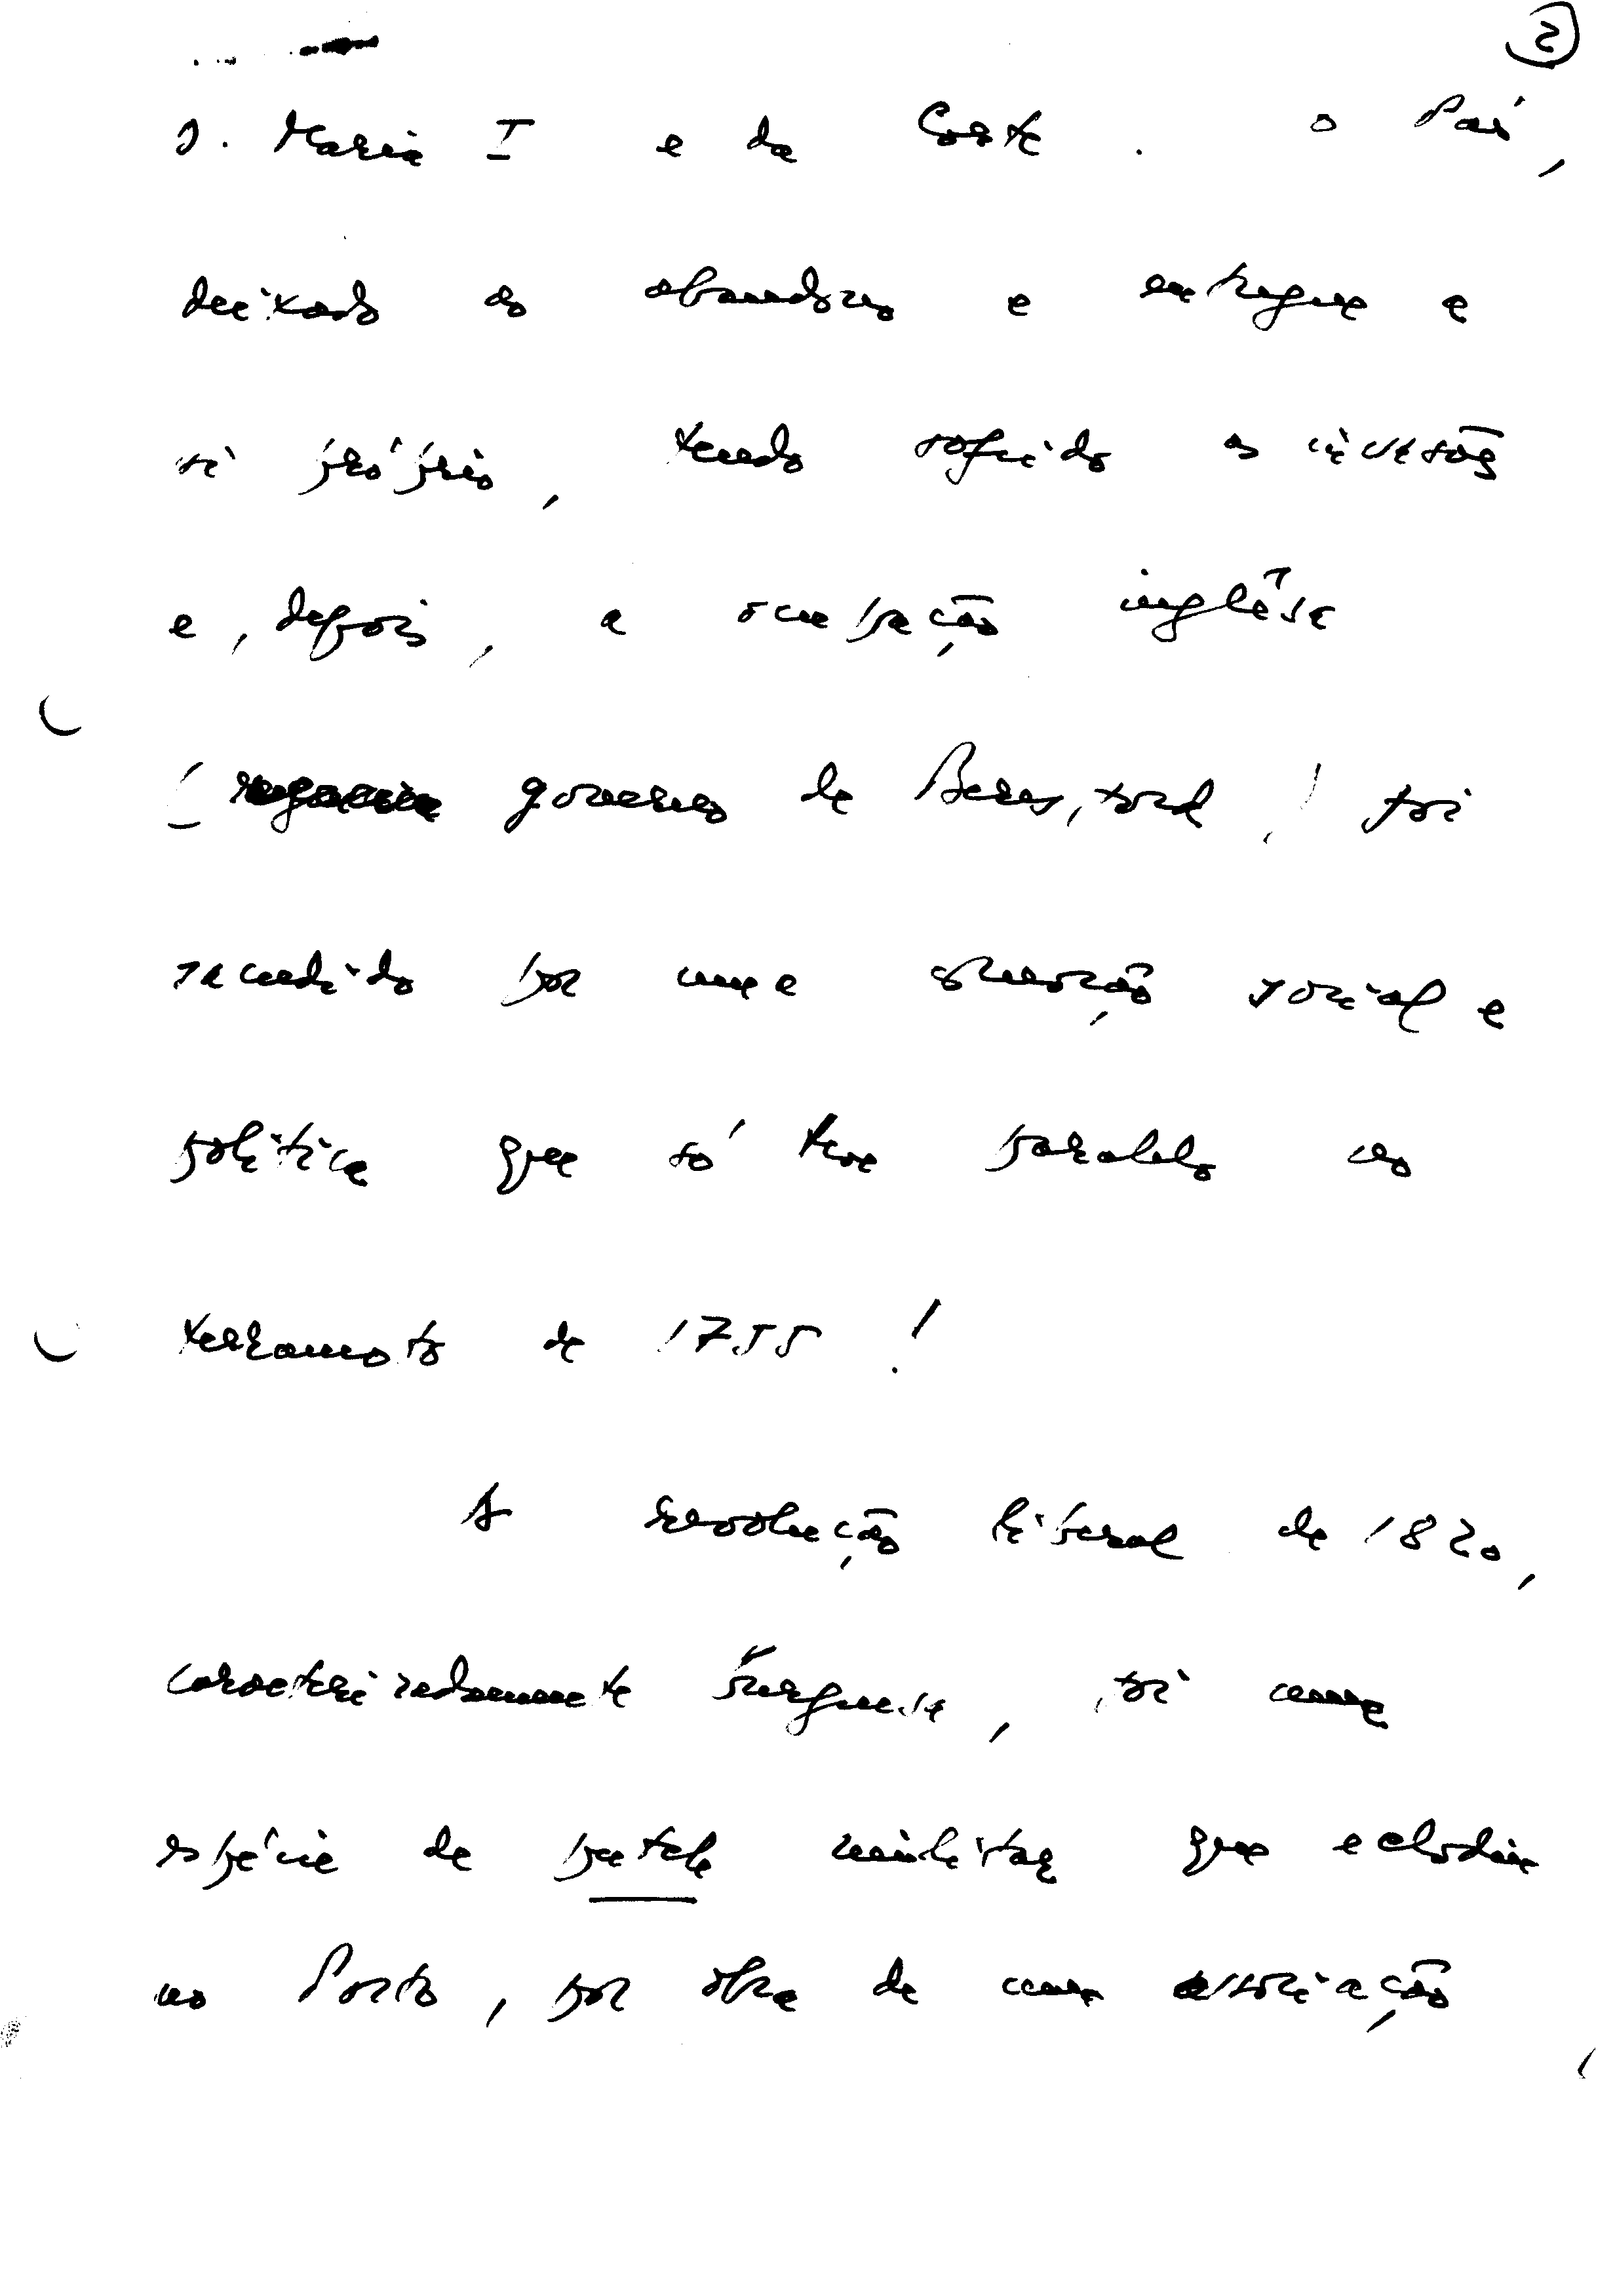 2
D. Maria I e da Corte. O País,
deixado ao abandono e entregue a
si próprio, tendo sofrido as invasões
e, depois, a ocupação inglêsa
( governo de Beresford ) foi
sacudido por uma situação social e
política que só teve paralelo no
terramoto de 1755!
A revolução liberal de 1820,
caracterizadamente burguesa, foi uma
espécie de putch militar que eclodiu
no Porto, por obra de uma associação